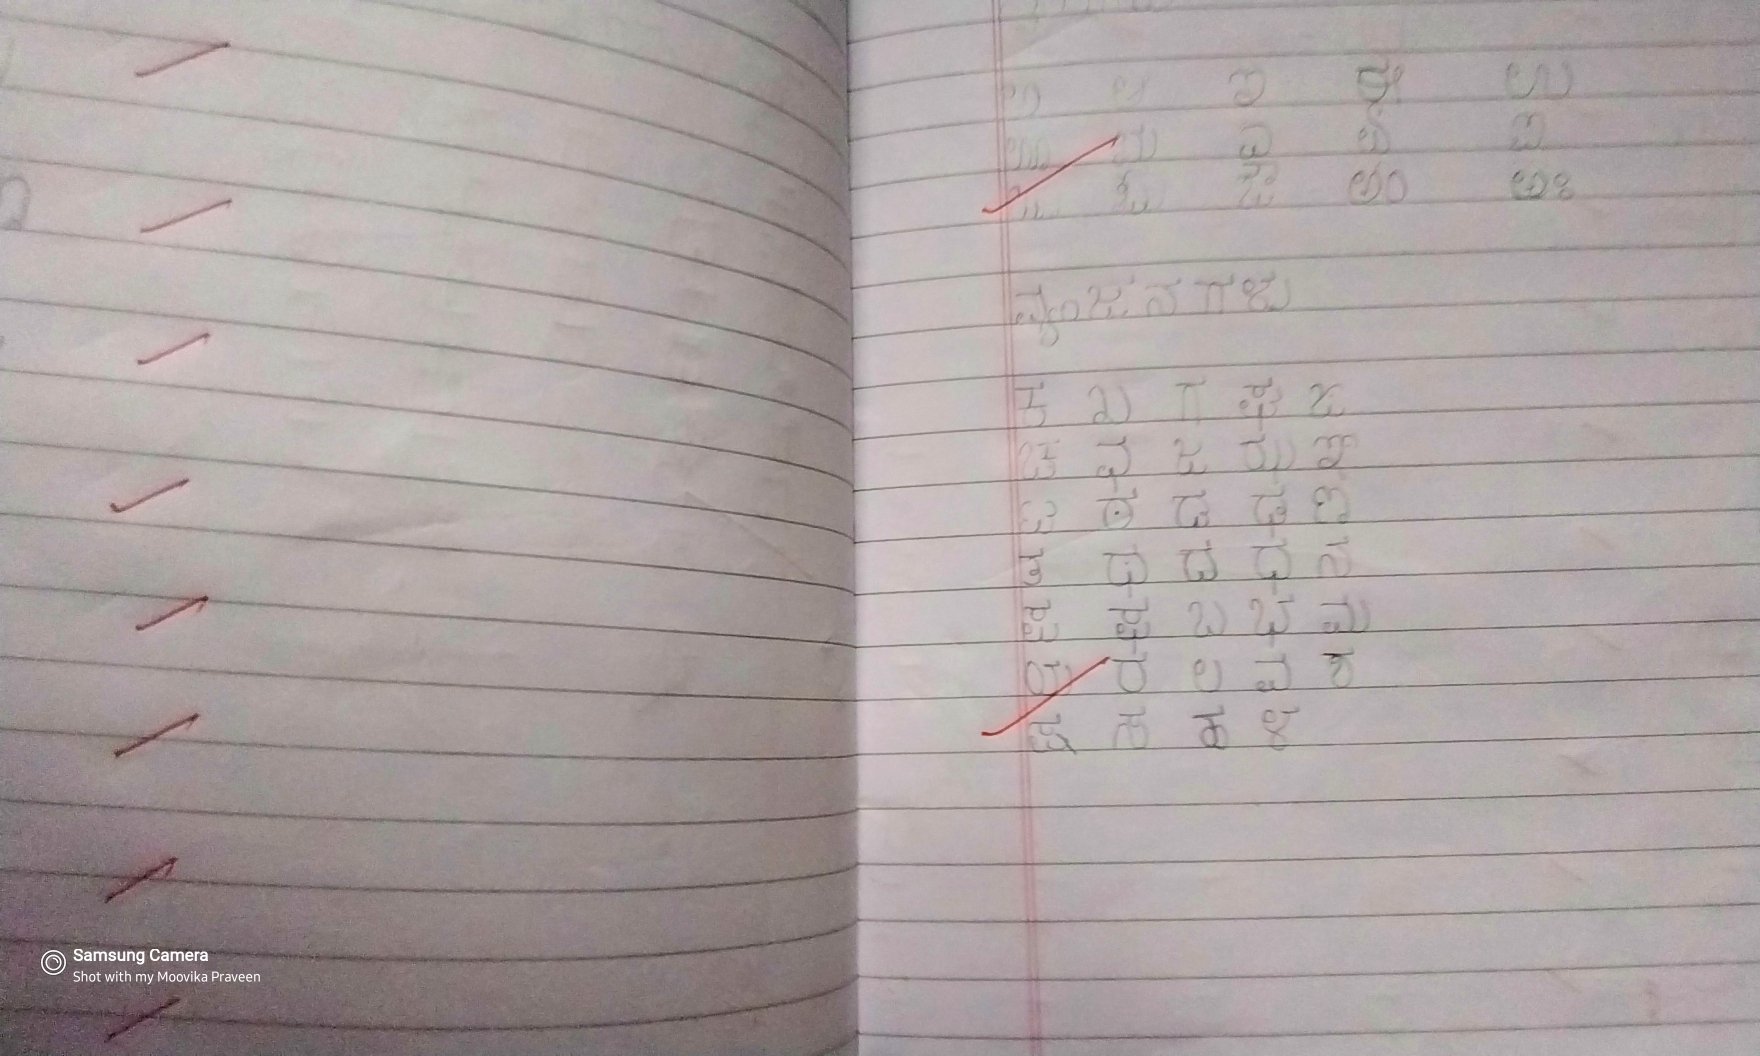 ಅ ಆ ಇ ಈ ಉ
ಊ ಋ ಎ ಏ ಐ
ಒ ಓ ಔ ಅಂ ಅಃ
ವ್ಯಂಜನಗಳು
ಕ ಖ ಗ ಘ ಙ
ಚ ಛ ಜ ಝ ಞ
ಟ ಠ ಡ ಢ ಣ
ತ ಥ ದ ಧ ನ
ಪ ಫ ಬ ಭ ಮ
ಯ ರ ಲ ವ ಶ
ಷ ಸ ಹ ಳ
Samsung Camera
Shot with my Moovika Praveen